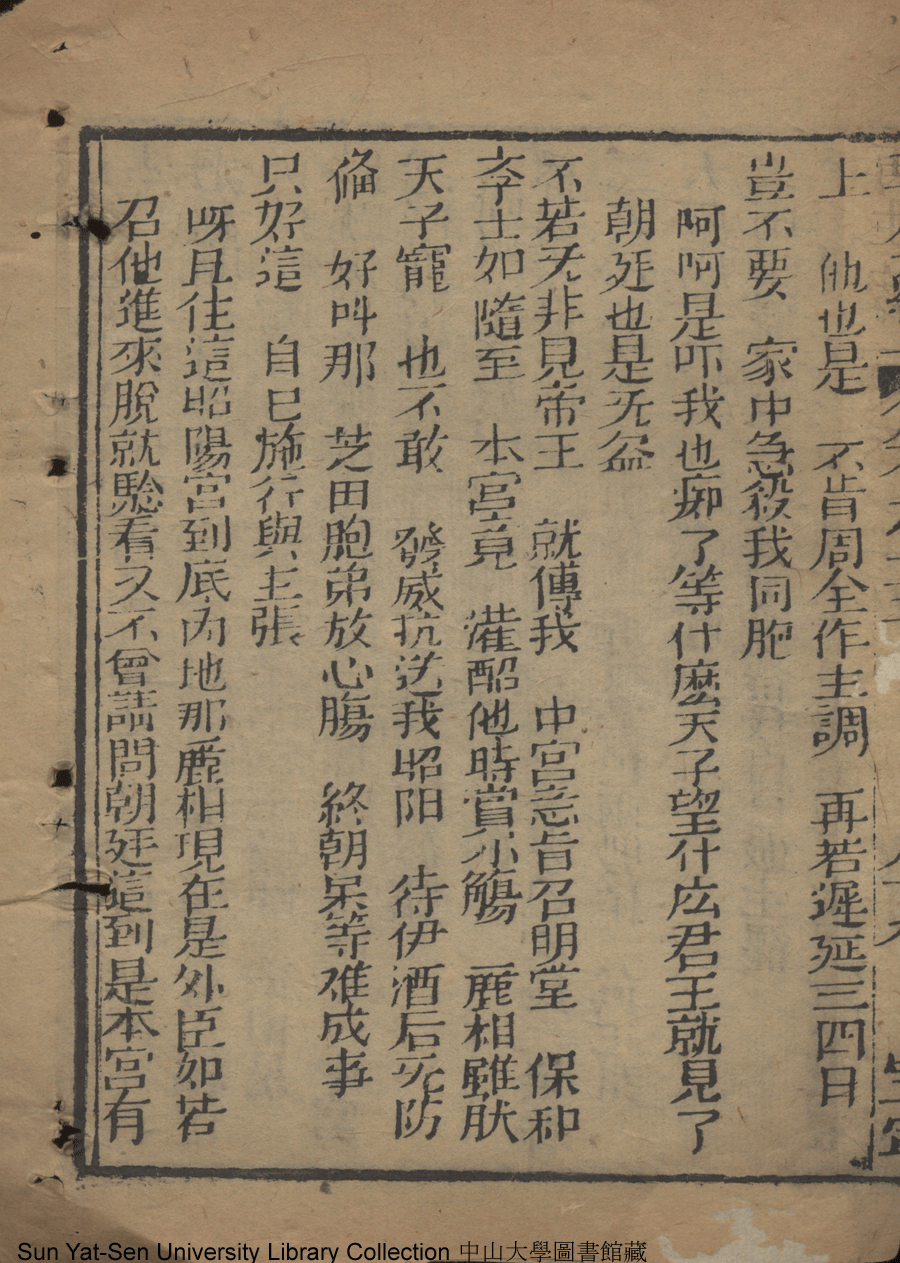 上　他也是　不肯周全作主調　再若遲延三四日
豈不要　家中急殺我同胞
阿阿是吓我也痴了等什麽天子望什広君王就見了
朝廷也是无益
不若无非見帝王　就傳我　中宮意旨召明堂　保和
李士如隨至　本宮竟　灌酩他時賞小觴　麗相雖肰
天子寵　也不敢　發威抗送我昭阳　待伊酒后无防
俻　好叫那　芝田胞弟放心腸　終朝呆等难成事
只好這　自已施行與主張
呀且住這昭陽宮到底內地那麗相現在是外臣如若
召他進來脫就騐看又不曾請問朝廷這到是本宮有
Sun Yat-Sen University Library Collection 中山大學圖書館藏